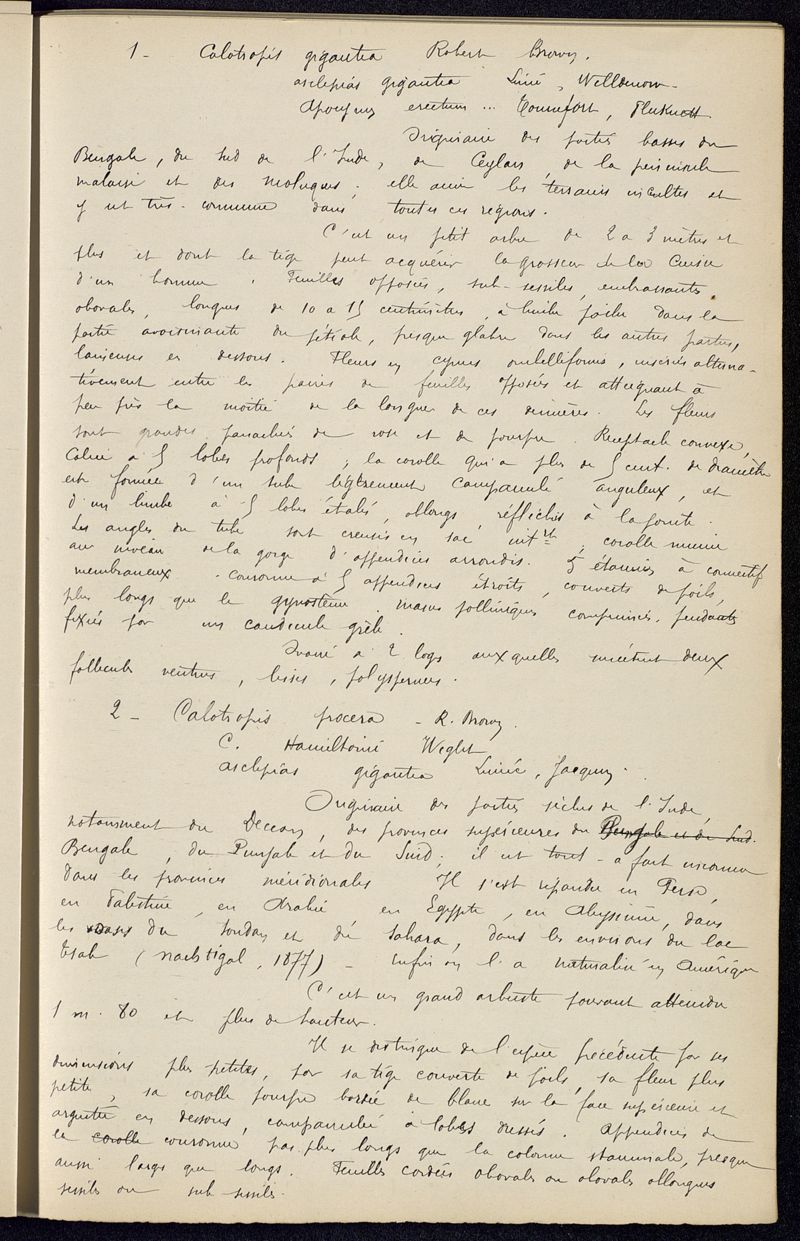 1 - Calotropis gigantea Robert Brown.
asclepias gigantea Linné, Willdenow -
Apocynum erectum ... Tournefort, Plukenett
Originaire des parties basses du
Bengale, du Sud de l'Inde, de Ceylan, de la péninsule
malaise et des Moluques; elle aime les terrains incultes et
y est très-commune dans toutes ces régions.
C'est un petit arbre de 2 à 3 mètres et
plus et dont la tige peut acquérir la grosseur de la Cuisse
d'un homme. Feuilles opposées, sub-sessiles, embrassantes
obovales, longues de 10 à 15 centimètres, à limbe poilu dans la
partie avoisinante du pétiole, presque glabre dans les autres parties,
laineuses en dessous. Fleurs en cymes ombelliformes, insérées alterna-
tivement entre les paires de feuilles opposées et atteignant à
peu près la moitié de la longueur de ces dernières. Les fleurs
sont grandes panachées de rose et de pourpre. Réceptacle convexe,
Calice à 5 lobes profonds; la corolle qui a plus de 5 cent. de diamètre
est formée d'un tube légèrement campanulé anguleux, et
d'un limbe à 5 lobes étalés, oblongs, réfléchis à la pointe.
Les angles du tube sont creusés en sac, corolle munie
au niveau de la gorge d'appendices arrondis. 5 étamines à connectif
membraneux. Couronne à 5 appendices étroits, couverts de poils,
plus longs que le gynostème. masses polliniques comprimées, pendantes
fixées par un caudicule grêle.
Ovaire à 2 loges auxquelles succèdent deux
follicules ventrus, lisses, polyspermes.
2 - Calotropis procera - R. Brown.
C. Hamiltonii Weght
asclepias gigantea Linné, Jacquin.
Originaire des parties sèches de l'Inde,
notamment du Deccan, des provinces supérieures du Bengale et du Sud.
Bengale, du Punjab et du Sind; il est tout-à fait inconnu
dans les provinces méridionales Il s'est répandu en Perse,
en Palestine, en Arabie, en Egypte, en Abyssinie, dans
les oasis du Soudan et du Sahara, dans les environs du lac
Tsab (Nachtigal, 1877) - Enfin on l'a naturalisé en Amérique
C'est un grand arbuste pouvant atteindre
1 m. 80 et plus de hauteur.
Il se distingue de l'espèce précédente par ses
dimensions plus petites, par sa tige couverte de poils, sa fleur plus
petite, sa corolle pourpre bordée de blanc sur la face supérieure et
argentée en dessous, campanulée à lobes dressés. Appendices de
la corolle couronne pas plus longs que la colonne staminale, presque
aussi larges que longs. Feuilles cordées obovales ou obovales oblongues
sessiles ou sub sessiles.